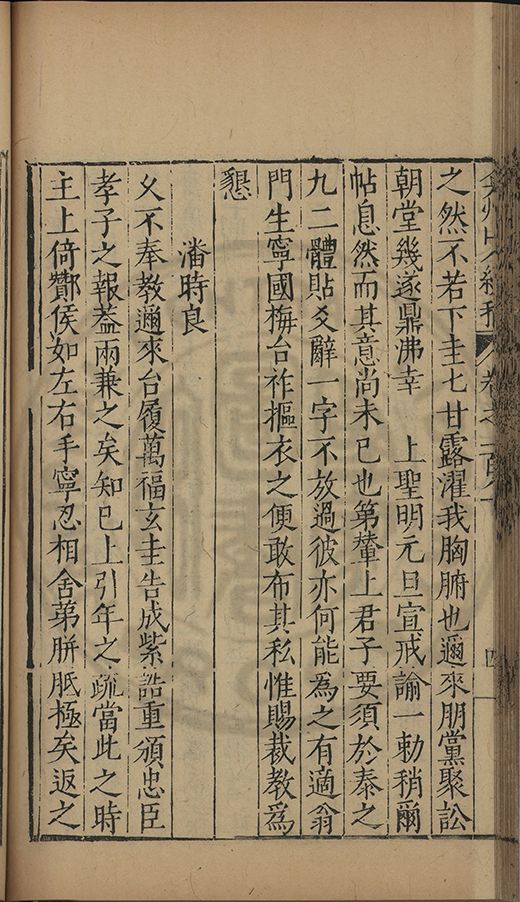 弇州山人續稿 卷之一百八 四
之然不若下圭七甘露濯我胸腑也邇來朋黨聚訟
朝堂幾遂鼎沸幸 上聖明元旦宣戒諭一勅稍爾
帖息然而其意尚未已也第輦上君子要須於泰之
九二體貼爻辭一字不放過彼亦何能為之有適翁
門生寧國梅台祚摳衣之便敢布其私惟賜裁教為
懇
潘時良
乆不奉教邇來台履萬福玄圭告成紫誥重頒忠臣
孝子之報葢兩兼之矣知已上引年之疏當此之時
主上倚酇侯如左右手寧忍相舍苐胼胝極矣返之